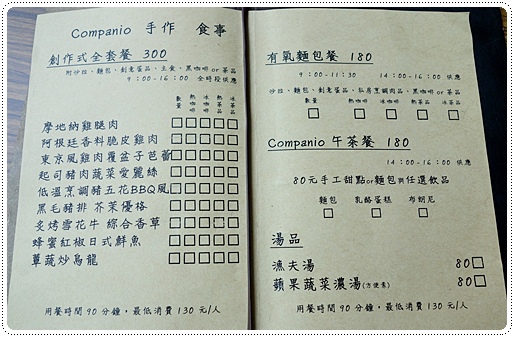 Companio 手作 食事
創作式全套餐 300
附沙拉、麵包、創意蛋品、主食、黑咖啡 or 茶品
9:00-16:00 全時段供應
數量 熱咖啡 冰咖啡 熱茶品 冰茶品
摩地納雞腿肉
阿根廷香料脆皮雞肉
東京風雞肉覆盆子芭蕾
起司豬肉蔬菜愛麗絲
低溫烹調豬五花BBQ風
黑毛豬排 芥茉優格
炙烤雪花牛 綜合香草
蜂蜜紅椒日式鮮魚
蕈蔬炒烏龍
用餐時間90分鐘,最低消費130元/人
有氧麵包餐 180
9:00-11:30 14:00-16:00 供應
沙拉、麵包、創意蛋品、私房烹調肉品、黑咖啡or茶品
數量 熱咖啡 冰咖啡 熱茶品 冰茶品
Companio 午茶餐 180
14:00-16:00 供應
80元手工甜點or麵包與任選飲品
麵包 乳酪蛋糕 布朗尼
湯品
漁夫湯 80
蘋果蔬菜濃湯(方便素) 80
用餐時間90分鐘,最低消費130元/人